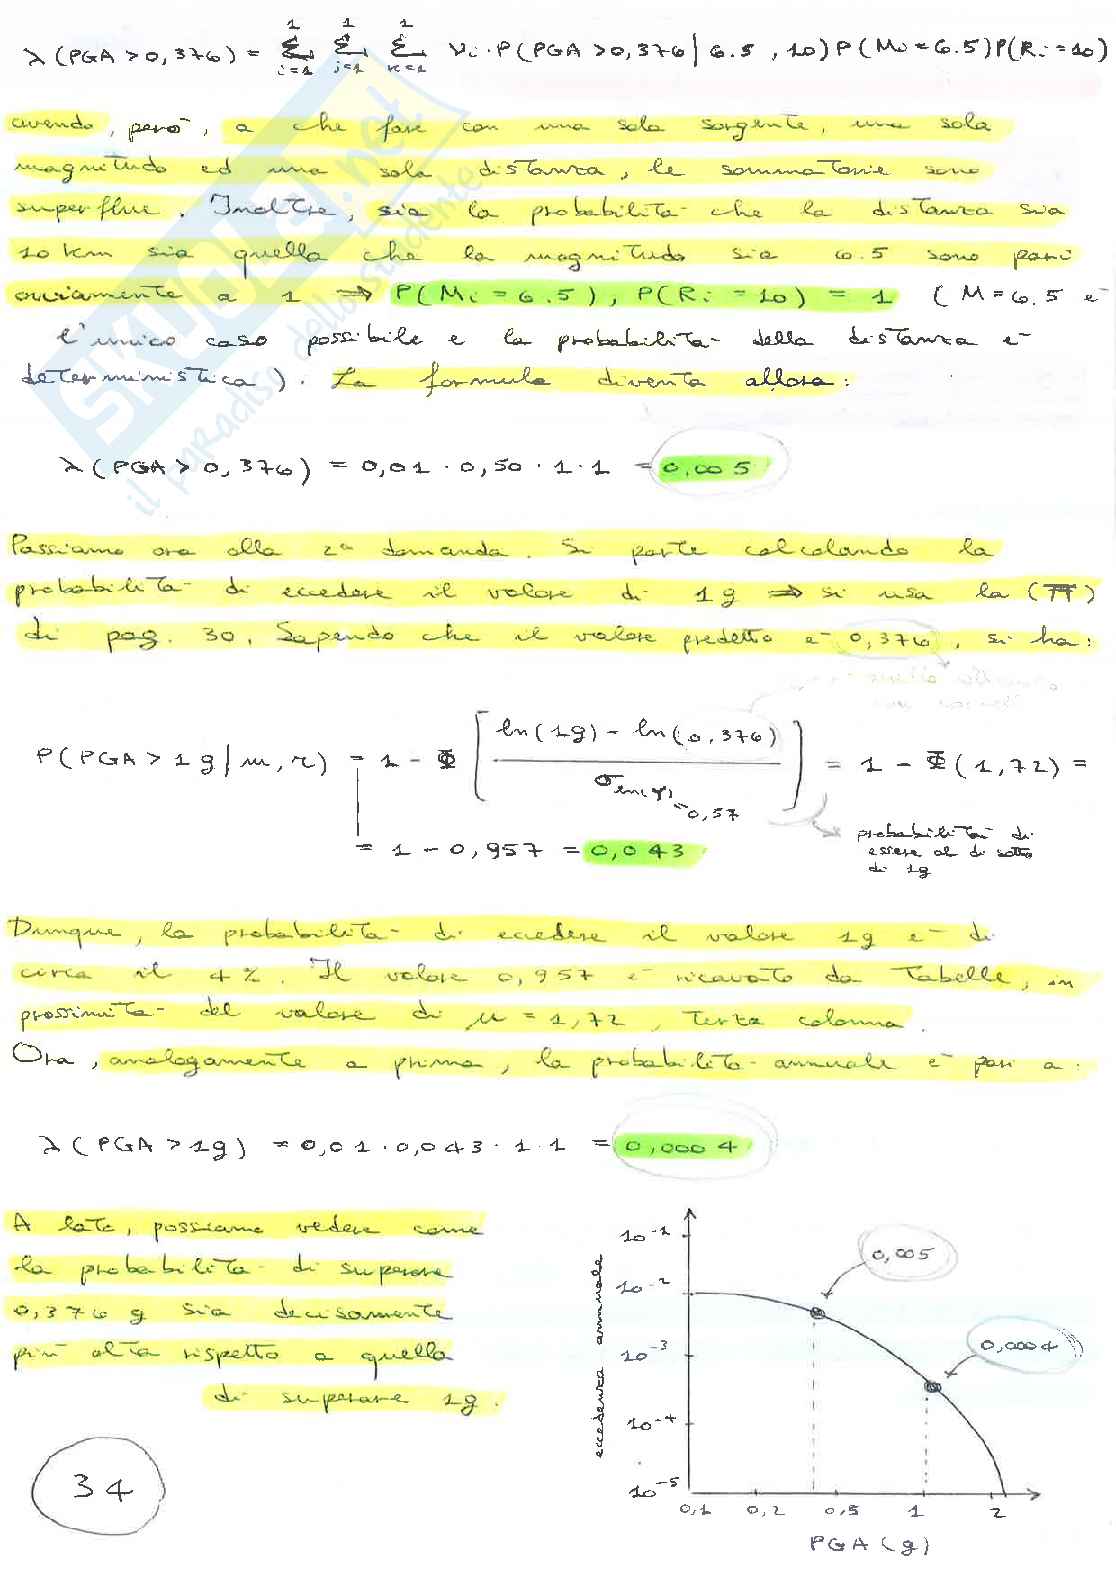 λ(PGA>0,376) = Σ i=1 1 Σ j=1 1 Σ k=1 1 νi·P(PGA>0,376|6.5,10)P(Mi=6.5)P(Ri=10)
avendo, però, a che fare con una sola sorgente, una sola
magnitudo ed una sola distanza, le sommatorie sono
superflue. Inoltre, sia la probabilità che la distanza sia
10 km sia quella che la magnitudo sia 6.5 sono pari
ovviamente a 1 ⇒ P(Mi=6.5), P(Ri=10) = 1 (M=6.5 è
l'unico caso possibile e la probabilità della distanza è
deterministica). La formula diventa allora:
λ(PGA>0,376) = 0,01·0,50·1·1 = 0,005
Passiamo ora alla 2ª domanda. Si parte calcolando la
probabilità di eccedere il valore di 1g ⇒ si usa la (π)
di pag. 30. Sapendo che il valore predetto è 0,376, si ha:
P(PGA>1g|m,r) = 1 - Φ [ ln(1g) - ln(0,376) / σln(Y)=0,57 ] = 1 - Φ(1,72) =
= 1 - 0,957 = 0,043
probabilità di
essere al di sotto
di 1g
Dunque, la probabilità di eccedere il valore 1g è di
circa il 4%. Il valore 0,957 è ricavato da Tabelle, in
prossimità del valore di μ = 1,72, terza colonna.
Ora, analogamente a prima, la probabilità annuale è pari a:
λ(PGA>1g) = 0,01·0,043·1·1 = 0,0004
A lato, possiamo vedere come
la probabilità di superare
0,376 g sia decisamente
più alta rispetto a quella
di superare 1g.
34
eccedenza annuale
10⁻¹
10⁻²
10⁻³
10⁻⁴
10⁻⁵
0,005
0,0004
0,1 0,2 0,5 1 2
PGA (g)
SKUOLA.net
il paradiso dello studente